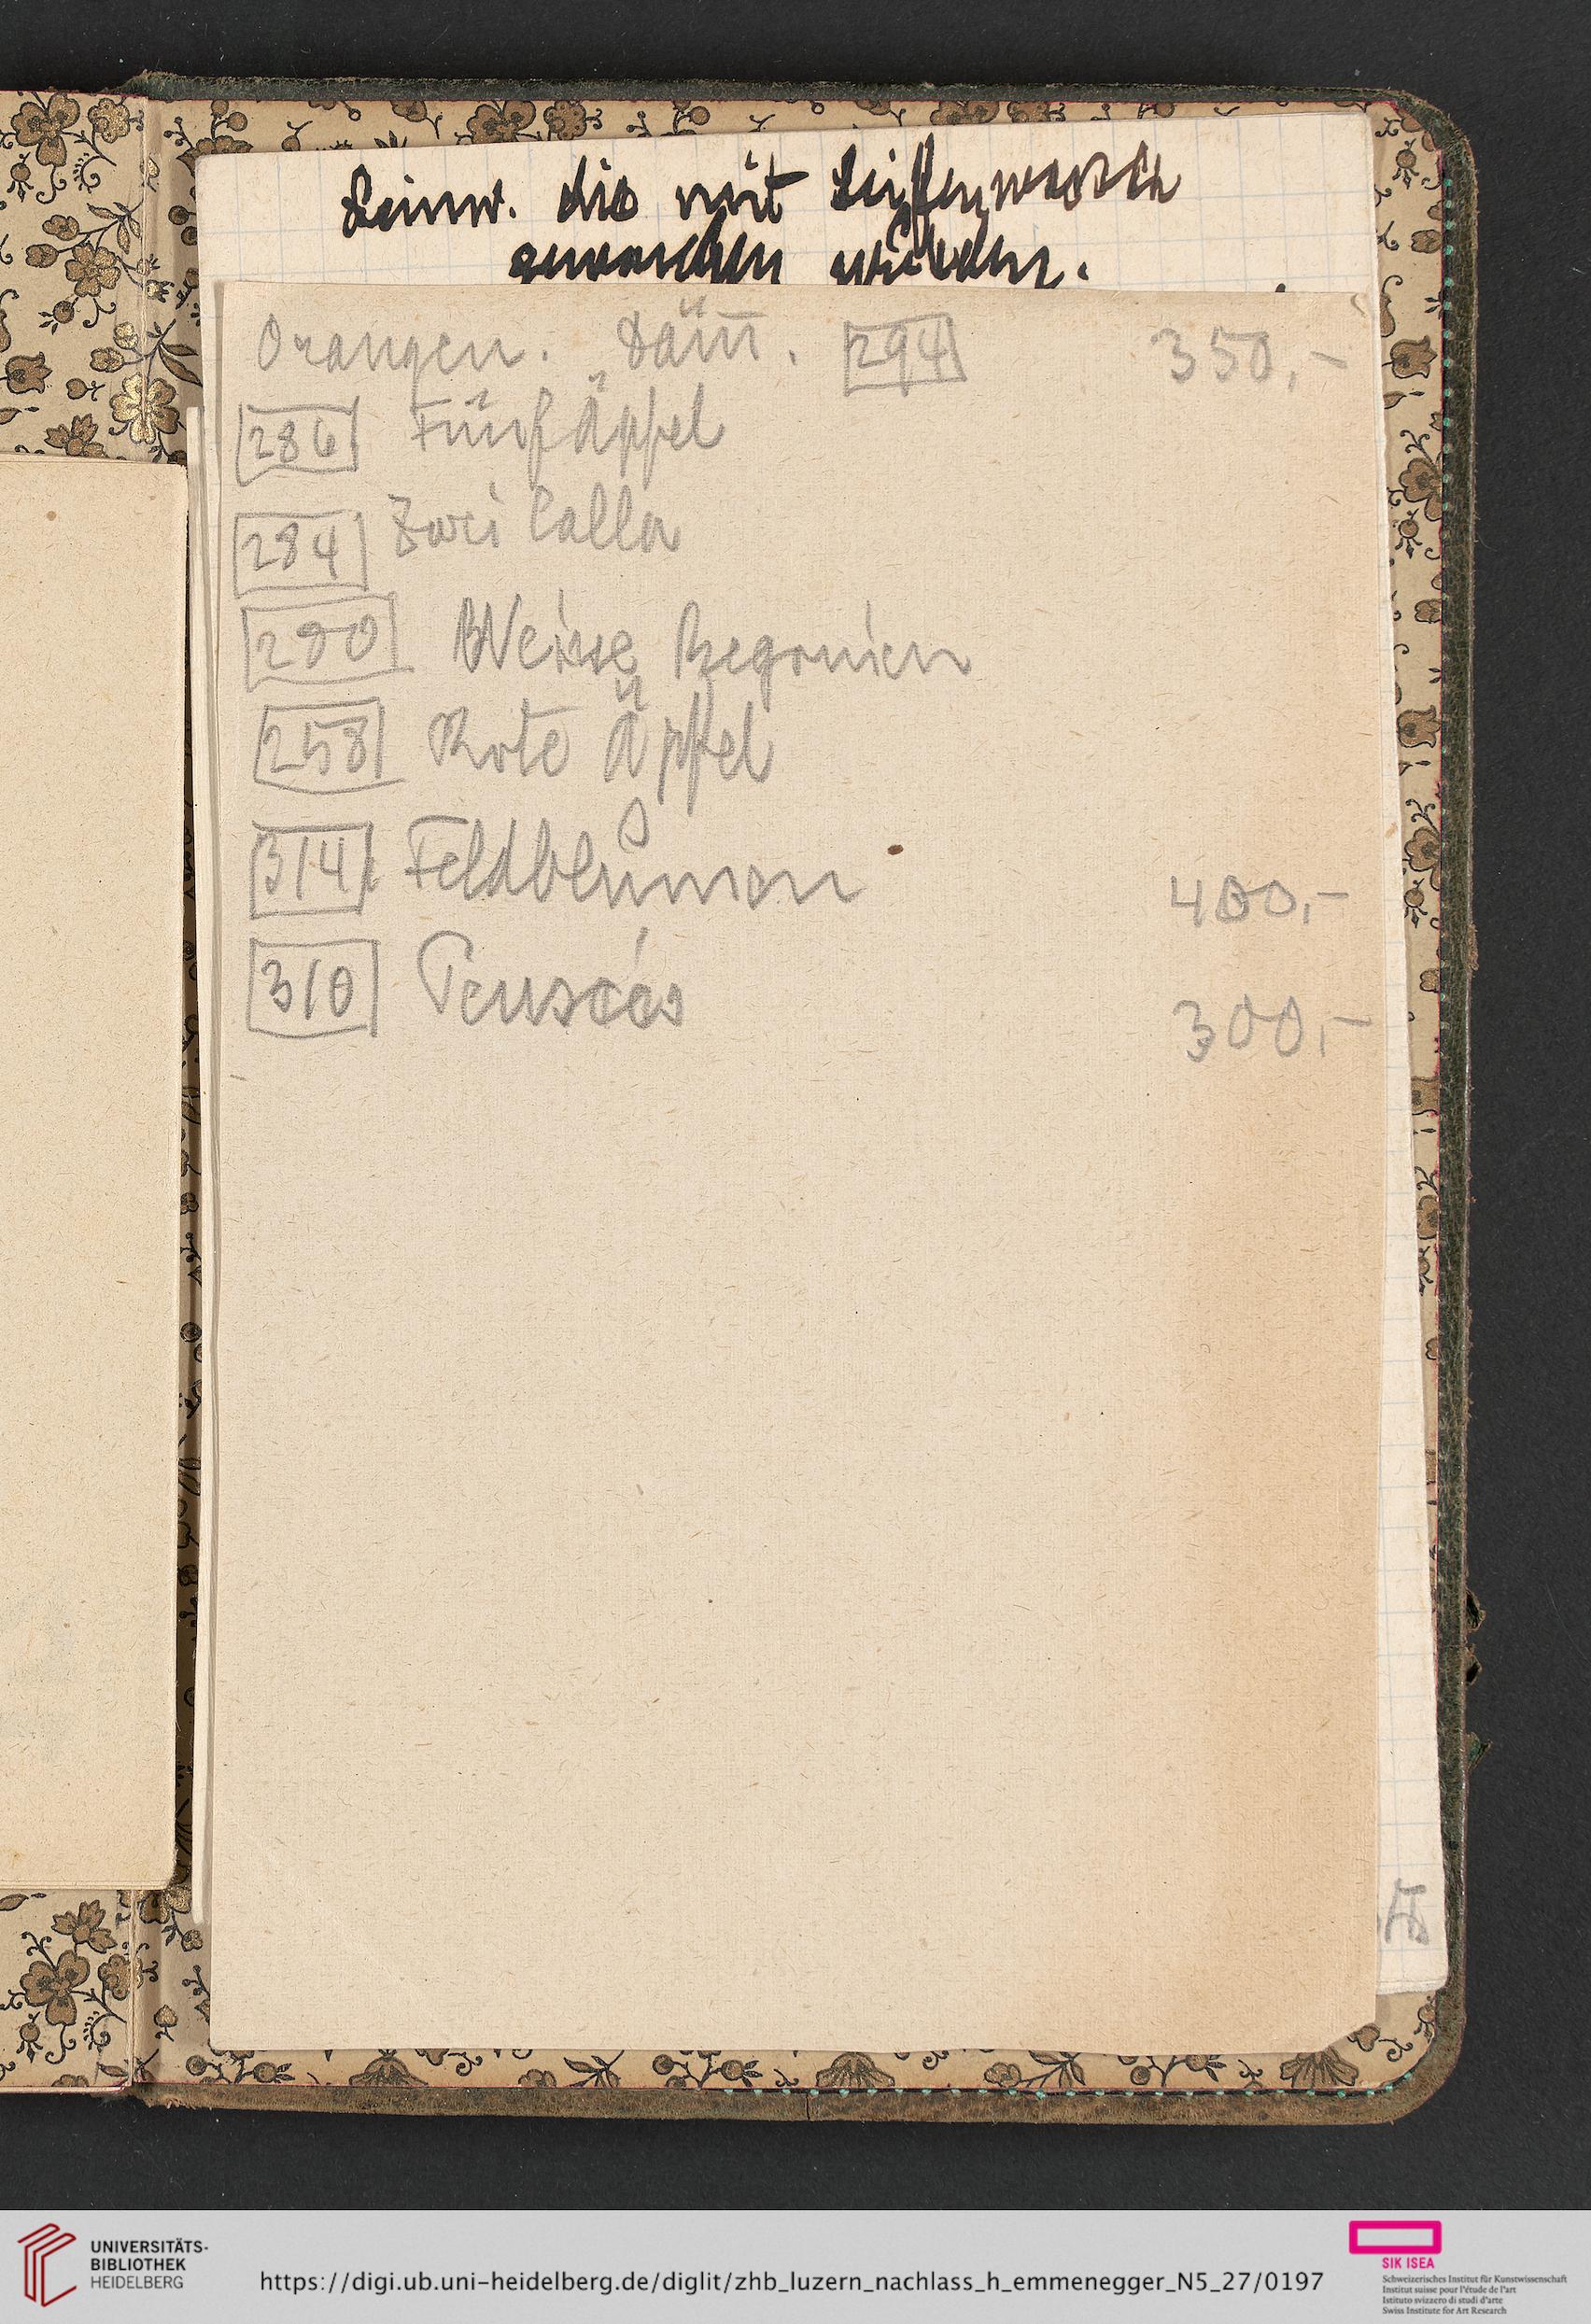 Leinw. die mit Seifenwasser
gewaschen wurden.
Orangen. Däm. 294 350,-
286 Fünf Äpfel
284 Zwei Calla
290 Weisse Begonien
258 Rote Äpfel
314 Feldblumen 400,-
310 Pensées 300,-
UNIVERSITÄTS-
BIBLIOTHEK
HEIDELBERG
https://digi.ub.uni-heidelberg.de/diglit/zhb_luzern_nachlass_h_emmenegger_N5_27/0197
SIK ISEA
Schweizerisches Institut für Kunstwissenschaft
Institut suisse pour l'étude de l'art
Istituto svizzero di studi d'arte
Swiss Institute for Art Research